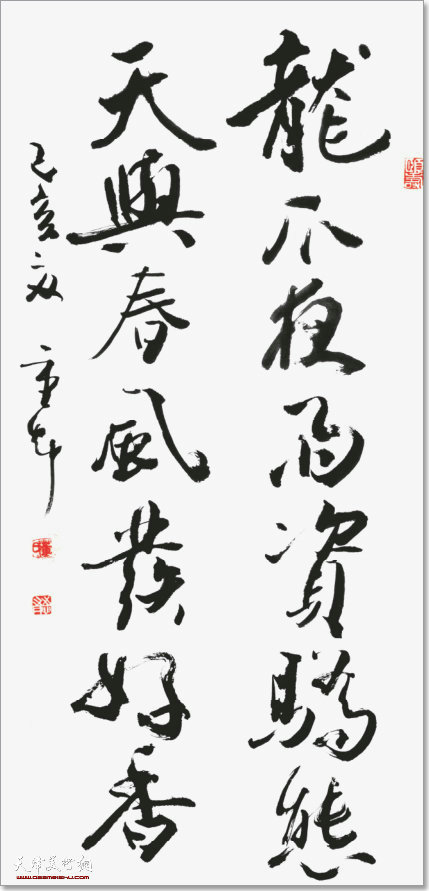 龍爪夜雨資驕態
天與春風發好香
己亥夏
天津美术网